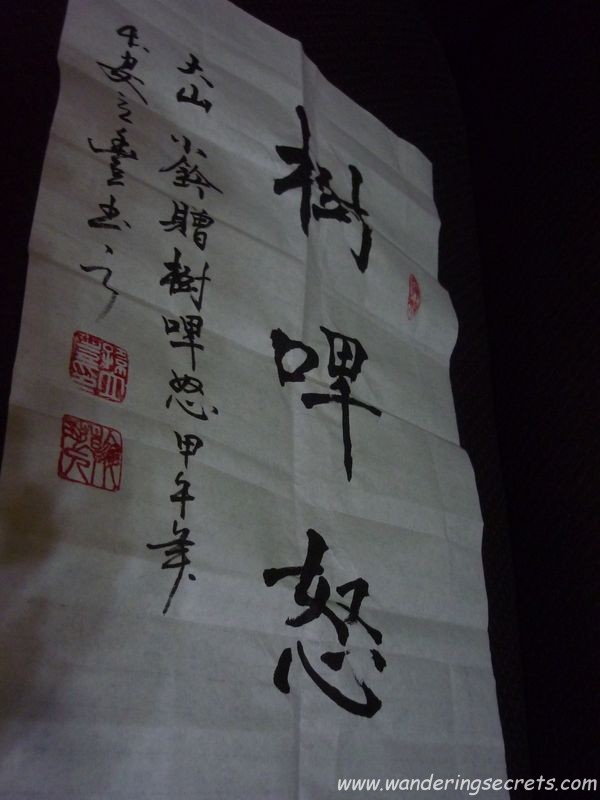 樹啤怒
大山 小鈴贈樹啤怒甲午年
立豊书
www.wanderingsecrets.com